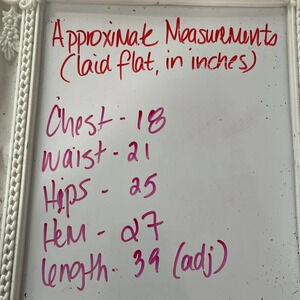 Approximate Measurements
(laid flat, in inches)
Chest - 18
Waist - 21
Hips - 25
Hem - 27
Length - 39 (adj)